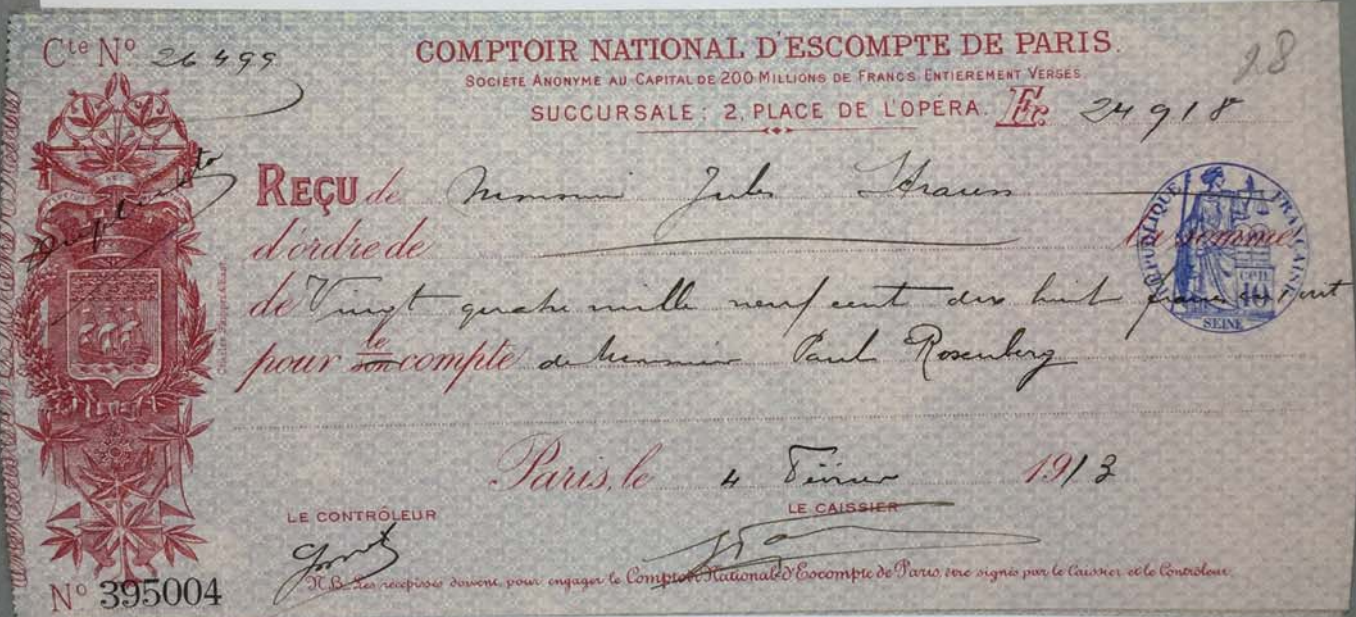 Cte No 26499
COMPTOIR NATIONAL D'ESCOMPTE DE PARIS.
28
SOCIÉTÉ ANONYME AU CAPITAL DE 200 MILLIONS DE FRANCS ENTIEREMENT VERSÉS.
SUCCURSALE : 2, PLACE DE L'OPÉRA. Fr. 24 918
duplicata
REÇU de Monsieur Jules Strauss
d'ordre de la somme
de Vingt quatre mille neuf cent dix huit francs
pour son le compte de Monsieur Paul Rosenberg
RÉPUBLIQUE FRANÇAISE
10
SEINE
Paris, le 4 Février 1913
LE CONTRÔLEUR
LE CAISSIER
N.B. Les récépissés doivent, pour engager le Comptoir National d'Escompte de Paris, être signés par le Caissier et le Contrôleur.
No 395004